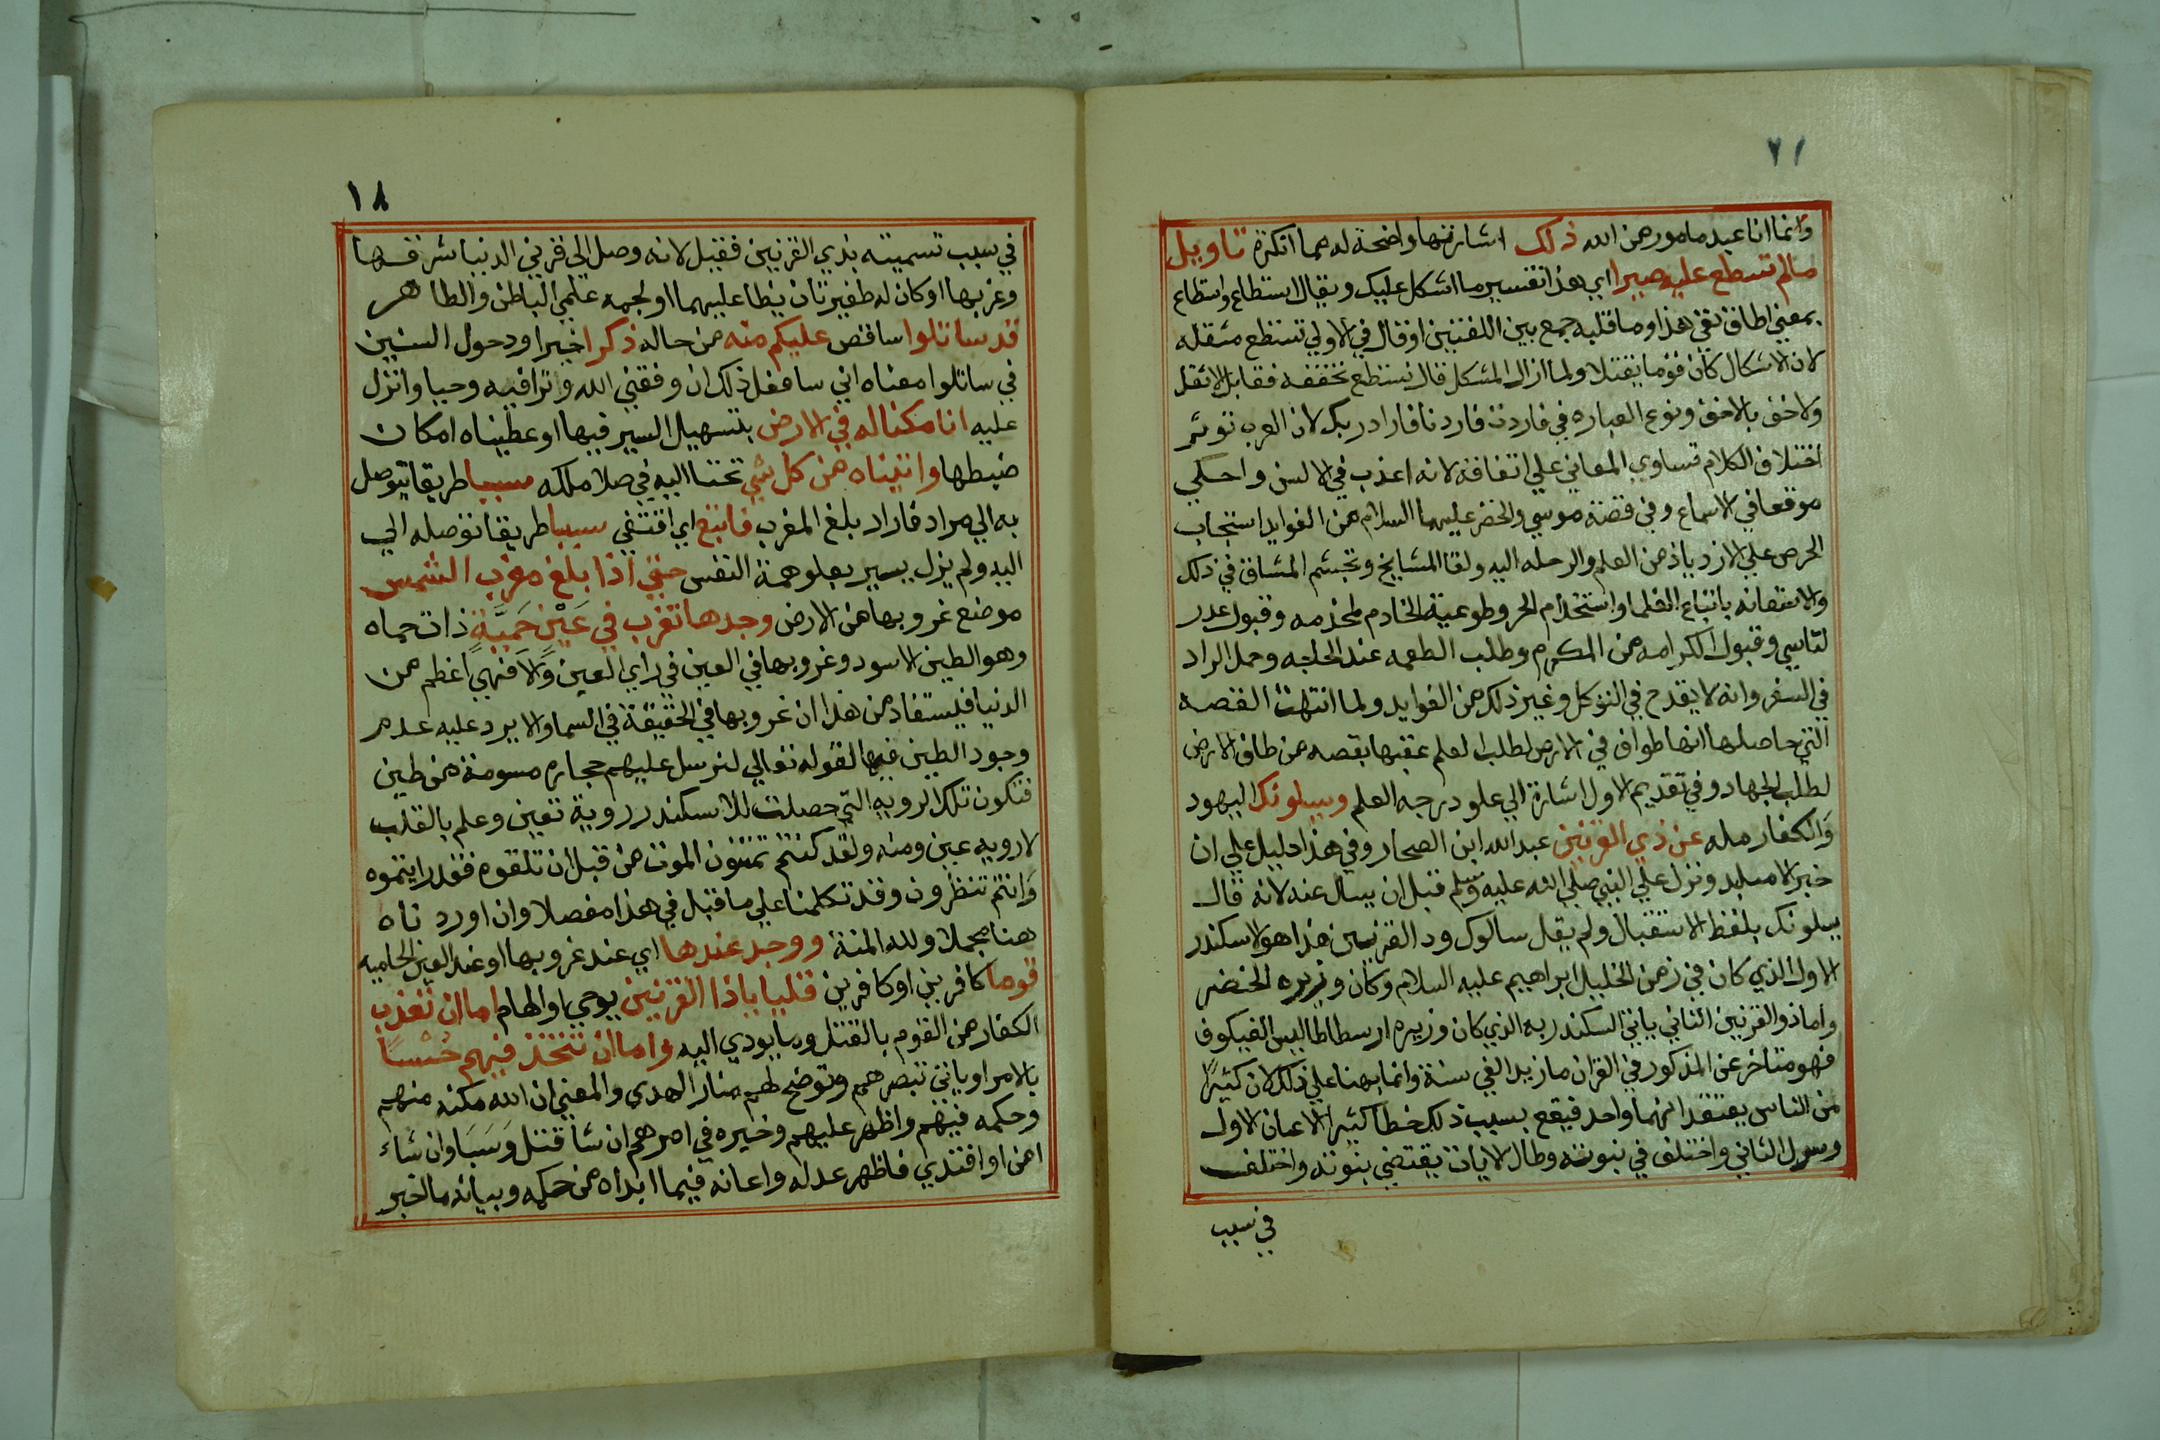 ٢١
وانما انا عبد مامور من الله ذلك اشار نتها واضحة له مما انكرة تاويل
مالم تسطع عليه صبرا اي هذا تفسير ما اشكل عليك ويقال استطاع واسطاع
بمعني اطاق نفي هذا وما قبله جمع بين اللغتين او قال في الاولي تستطع مثقله
لان الاشكال كان قويا ثقيلا ولما ازال المشكل قال تسطع مخففه فقابل الاثقل
ولاخف بالاخف ونوع العباره في فاردت فاردنا فاراد ربك لان العرب توثر
اختلاف الكلام تساوي المعاني علي اتفاقه لانه اعذب في الالسن واحلي
موقعا في الاسماع وفي قصة موسي والخضر عليهما السلام من الفوايد استحباب
الحرص علي الازدياد من العلم والرحله اليه ولقا المشايخ وتجشم المشاق في ذلك
والاستعانه باتباع العلما واستخدام الحر وطوعية الخادم لمخدمه وقبول عذر
لناسي وقبول الكرامه من المكرم وطلب الطعمه عند الحاجه وحمل الزاد
في السفر وانه لا يقدح في التوكل وغير ذلك من الفوايد ولما انتهت القصه
التي حاصلها انها طواف في الارض لطلب العلم عقبها بقصه من طاف الارض
لطلب الجهاد وفي تقديم الاول اشارة الي علو درجه العلم ويسلونك اليهود
والكفار مله عن ذي القرنين عبد الله ابن الضحاك وفي هذا دليل علي ان
جبرالا سليد ونزل علي النبي صلي الله عليه وسلم قبل ان يسال عنه لانه قال
يسلونك بلفظ الاستقبال ولم يقل سالوك ود القرنين هذا هو الاسكندر
الاول الذي كان في زمن الخليل ابراهيم عليه السلام وكان وزيره الخضر
واما ذوالقرنين الثاني باني السكندريه الذي كان وزيره ارسطاطاليس الفيلكوف
فهو متاخر عن المذكور في القران مازيد الفي سنة وانما بهنا علي ذلك لان كثيرا
من الناس يعتقد انهما واحد فيقع بسبب ذلك خطا كثير الاعان الاول
وسول الثاني واختلف في نبوته وطال الايات يقتضي بنوته واختلف
في سبب
١٨
في سبب تسميته بذي القرنين فقيل لانه وصل الي قرني الدنيا شرقها
وغربها او كان له ظفيرتان يطا عليهما او لجمه علمي الباطن والظاهر
قد ساتلوا ساقص عليكم منه من حاله ذكرا خبرا ودخول السين
في ساتلوا معناه اني سافعل ذلك ان وفقني الله وانزل فيه وحيا وانزل
عليه انا مكنا له في الارض بتسهيل السير فيها او عطيناه امكان
ضبطها واتيناه من كل شي تحتاليه في صلاملكه سببا طريقا يتوصل
به الي مراد فاراد بلغ المغرب فاتبع اي اقتفي سببا طريقا توصله الي
اليه ولم يزل يسير بعلو همة النفس حتي اذا بلغ مغرب الشمس
موضع غروبها من الارض وجدها تغرب في عَيْنٍ حَمِيَّةٍ ذات حماه
وهو الطين الاسود وغروبها في العين في راي العين وَالا فهي اعظم من
الدنيا فيستفاد من هذا ان غروبها في الحقيقة في السما ولا يرد عليه عدم
وجود الطين فيها لقوله تعالي لنرسل عليهم حجاره مسومة من طين
فتكون تلك الرويه التي حصلت للاسكندر روية تعين وعلم بالقلب
لارويه عين ومنه ولقد كنتم تمنون الموت من قبل ان تلقوه فقد رايتموه
وَانتم تنظرون وقد تكلمنا علي ما قبل في هذا مفصلا وان اوردناه
هنا مجملا ولله المنة ووجد عندها اي عند غروبها او عند العين الحاميه
قوما كافرين او كافرين قلنا ياذا القرنين بوحي او الهام اما ان تعذب
الكفار من القوم بالقتل وما يودي اليه واما ان تتخذ فيهم حُسْنًا
بالامر او ياتي تبصرهم وتوضح لهم منار الهدي والمعني ان الله مكنه منهم
وحكمه فيهم واظهر عليهم وخيره في امرهم ان شا قتل وَسَبَا وان شاء
امن او افتدي فاظهر عدله واعانه فيما ابداه من حكمه وبيانه ما اخبر